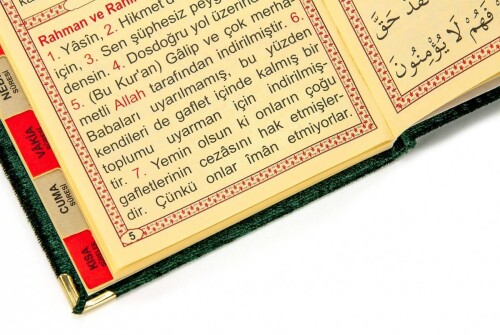 Rahman ve
1. Yâsîn, 2. Hikmet
için, 3. Sen şüphesiz
densin. 4. Dosdoğru yol üzerinde
5. (Bu Kur'an) Gâlip ve çok merha-
metli Allah tarafından indirilmiştir. 6.
Babaları uyarılmamış, bu yüzden
kendileri de gaflet içinde kalmış bir
toplumu uyarman için indirilmiş-
tir. 7. Yemin olsun ki onların çoğu
gafletlerinin cezâsını hak etmişler-
dir. Çünkü onlar îmân etmiyorlar.
5
SÛRESİ
VAKIA
SÛRESİ
CUMA
SÛRESİ
KISA
حَقَّ
فَهُمْ لَا يُؤْمِنُونَ